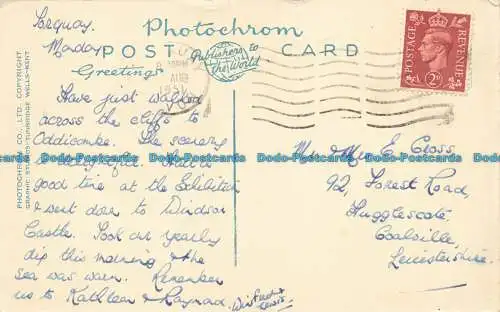 Torquay.
Monday
Photochrom
POST CARD
Publishers to
the World
Greetings
Have just walked
across the cliffs to
Oddicombe. The scenery
is delightful. Had a
good time at the Exhibition
& went down to Windsor
Castle. Took our yearly
dip this morning & the
sea was warm. Remember
us to Kathleen & Raymond.
Winifred &
Lewis.
PHOTOCHROM CO., LTD. COPYRIGHT
GRAPHIC STUDIOS, TUNBRIDGE WELLS, KENT
AUG
1951
POSTAGE
REVENUE
2D
Mr & Mrs E. Cross,
92, Forest Road,
Hugglescote,
Coalville,
Leicestershire.
Dodo-Postcards Dodo-Postcards Dodo-Postcards Dodo-Postcards Dodo-Postcards